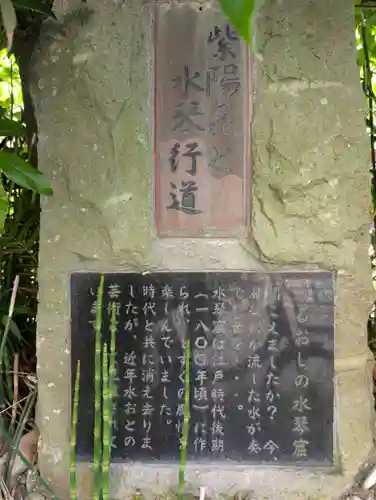 紫陽花と
水琴行道
おしの水琴窟
こえましたか? 今、
が流した水が奏
水琴窟は江戸時代後期
(一八〇〇年頃)に作
られ、
楽しんでいました。
時代と共に消え去りま
したが、近年水おとの
芸術
います。